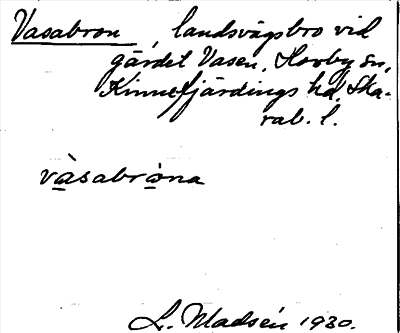 Vasabron, landsvägsbro vid
gärdet Vasen, Hovby sn,
Kinnefjärdings hd, Ska-
rab. l.
vàsabròna
L. Madsén 1930.